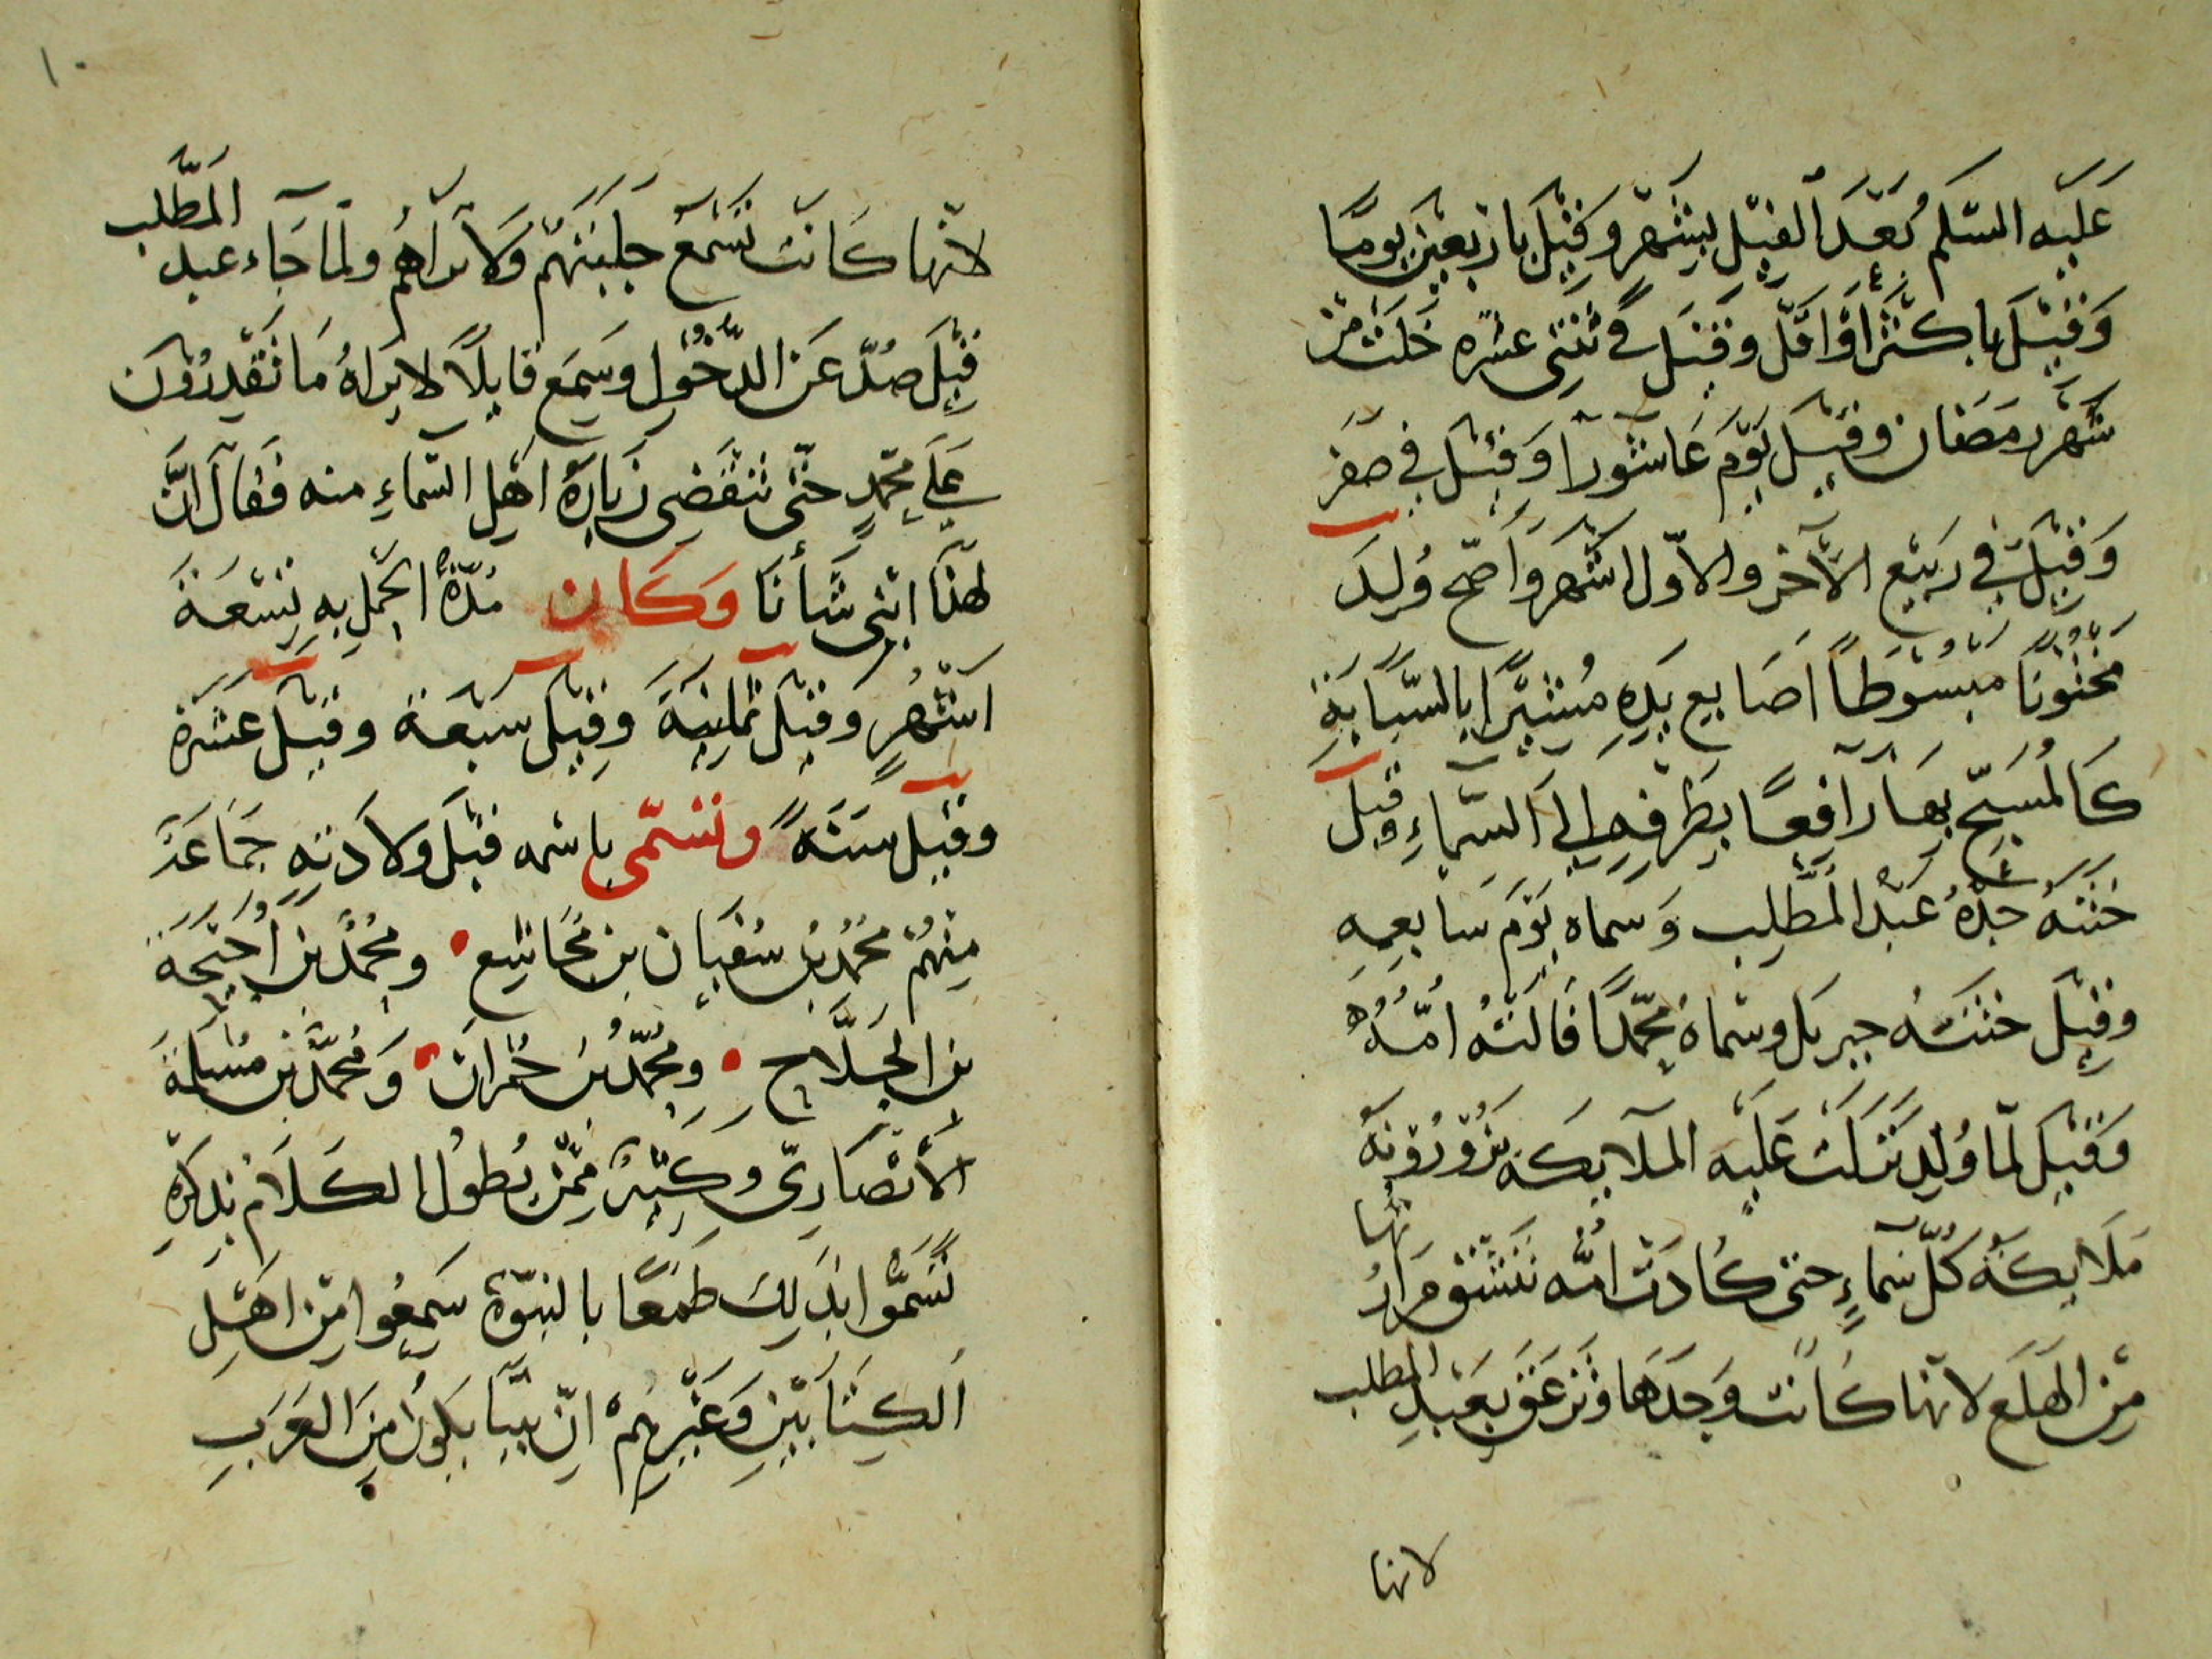 عَلَيْه السّلم بُعَيْدَ الفِيْل بِشَهْرٍ وَقِيْلَ بِاَرْبَعِيْنَ يَوْمًا
وَقِيْلَ بِاَكْثَرَ أَوْ اَقَلّ وَقِيْلَ فِي ثِنْتَي عَشْره خَلَتْ مِنْ
شَهْرِ رَمَضَان وقِيْلَ يَوْمَ عَاشُوْرَآ وَقِيْلَ فِي صَفَر
وَقِيْلَ فِي رَبِيْع الآخر والاوّل اشْهَر وَاَصَحّ وُلِدَ
مَخْتُوْنًا مَبْسُوْطًا اَصَابِع يَدِهِ مُشِيْرًا بِالسَّبَّابَةِ
كَالمُسَبِّحِ بِهَا رَافِعًا بِطَرْفِهِ اِلَى السَّمَاءِ وقيل
خَتَنَهُ جَدّهُ عَبْد المُطَّلِب وَسماه يَوْمَ سَابِعِهِ
وَقِيْلَ خَتَنَهُ جبريل وسَمّاهُ مُحَمّدًا قَالَتْهُ اُمُّهُ
وَقِيْلَ لَمّا وُلِدَ نَزَلَتْ عَلَيْه المَلَايِكَه يَزُوْرُوْنَهُ
مَلَايِكَة كُلّ سَمَاءٍ حتى كَادَتْ امّه تَنْشَقّ مَرَارتها
مِنَ الهَلَع لانّها كَانت وَحْدَهَا وَتزعق بِعَبْدِ المطلب
لانها
١٠
لانّها كَانَت تَسْمَع جَلَبَتَهُمْ وَلَا تَرَاهُمْ ولَمّا جَاء عبد المطّلب
قِيْلَ صُدَّ عَن الدُّخُوْل وسَمِعَ قَايلًا لَا يَرَاهُ مَا تَقْدِرُوْنَ
عَلَى مُحَمّدٍ حَتّى تَنْقَضِي زيَارَةُ اَهْلِ السّماءِ منه فَقَالَ اِنَّ
لهذا ابْنِي شَأْنًا وَكَان مُدّةُ الحَمل بِهِ تِسْعَة
اَشْهُرٍ وَقِيْلَ ثَمانِيَة وَقِيْلَ سَبْعَة وقيل عَشَرَة
وقيْل سَنَةً وَتَسَمّى باسْمه قَبْلَ وِلَادَتِهِ جَمَاعَة
مِنْهُمْ مُحَمّدُ بْن سُفْيَان بن مُجَاشِع • ومُحَمّد بْن اُحَيْحَة
بن الجُلَّاح • ومُحَمّد بْن حُمْرَان • وَمُحَمَّد بْن مَسْلَمَة
الأَنْصَارِيّ وَكَثِيْرٌ مِمَّنْ يُطُول الكَلَام بِذِكْرِهِ
تَسَمَّوْا بِذَلِكَ طَمَعًا بالنبوّة سَمِعُوا مِن اَهْل
الكِتَابَيْنِ وَغَيْرِهِمْ اِنّ نَبِيًّا يَكُوْن مِنَ العَرَب